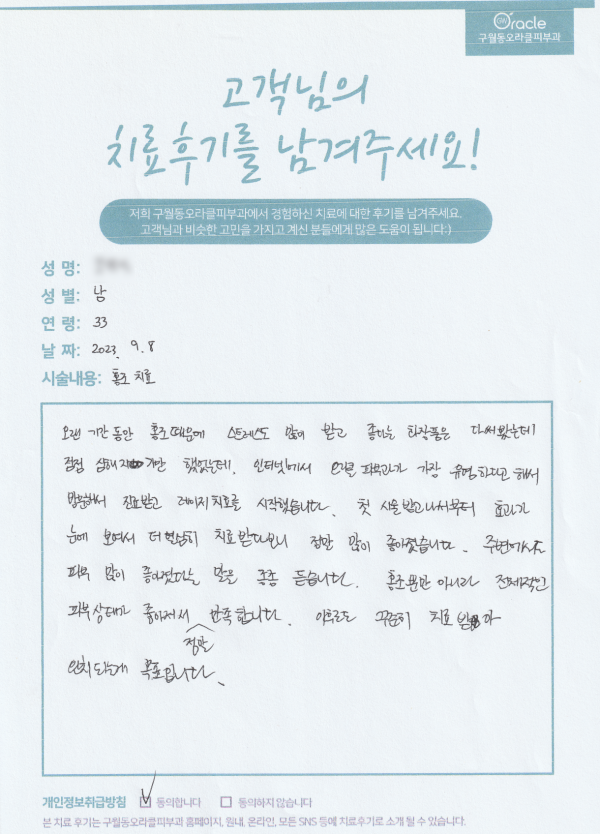 Oracle
구월동오라클피부과
고객님의
치료후기를 남겨주세요!
저희 구월동오라클피부과에서 경험하신 치료에 대한 후기를 남겨주세요.
고객님과 비슷한 고민을 가지고 계신 분들에게 많은 도움이 됩니다:)
성 명:
성 별: 남
연 령: 33
날 짜: 2023. 9. 8
시술내용: 홍조 치료
오랜 기간 동안 홍조때문에 스트레스도 많이 받고 좋다는 화장품은 다써봤는데
점점 심해지기만 했었는데, 인터넷에서 오라클 피부과가 가장 유명하다고 해서
방문해서 진료받고 레이저 치료를 시작했습니다. 첫 시술받고나서부터 효과가
눈에 보여서 더 열심히 치료 받다보니 정말 많이 좋아졌습니다. 주변에서도
피부 많이 좋아졌다는 말을 종종 듣습니다. 홍조뿐만 아니라 전체적인
피부상태가 좋아져서 정말 만족합니다. 앞으로도 꾸준히 치료 받아
완치되는게 목표입니다.
개인정보취급방침 동의합니다 동의하지 않습니다
본 치료 후기는 구월동오라클피부과 홈페이지, 원내, 온라인, 모든 SNS 등에 치료후기로 소개 될 수 있습니다.